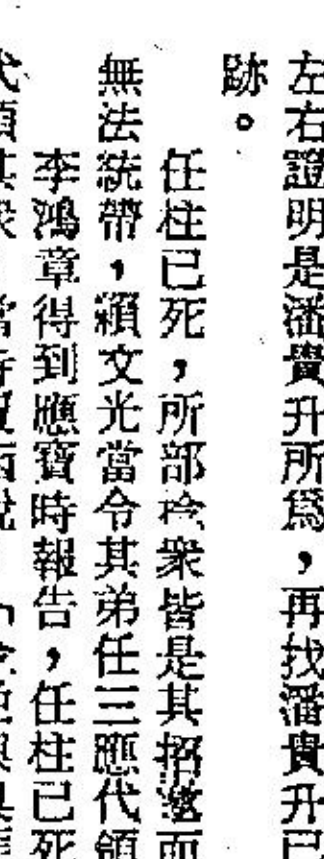 左右證明是潘貴升所爲，再找潘貴升已
跡。
任柱已死，所部衆皆是其招邀而
無法統帶，賴文光當令其弟任三應代領
李鴻章得到應寶時報告，任柱已死
代領其衆